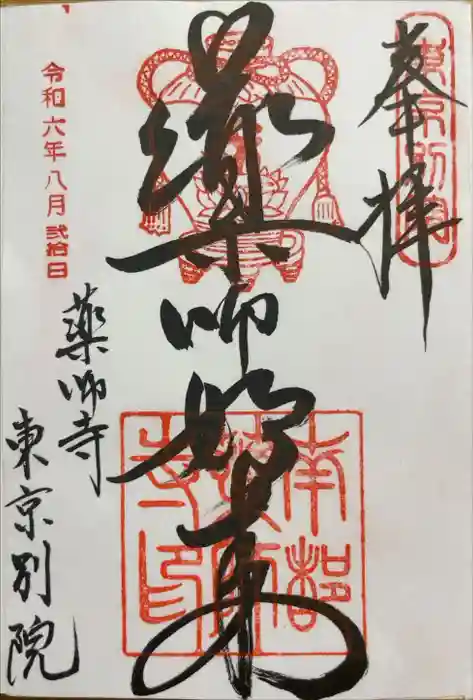 奉拝
東京別院
薬師如来
南都薬師寺印
令和六年八月弐拾日
薬師寺
東京別院